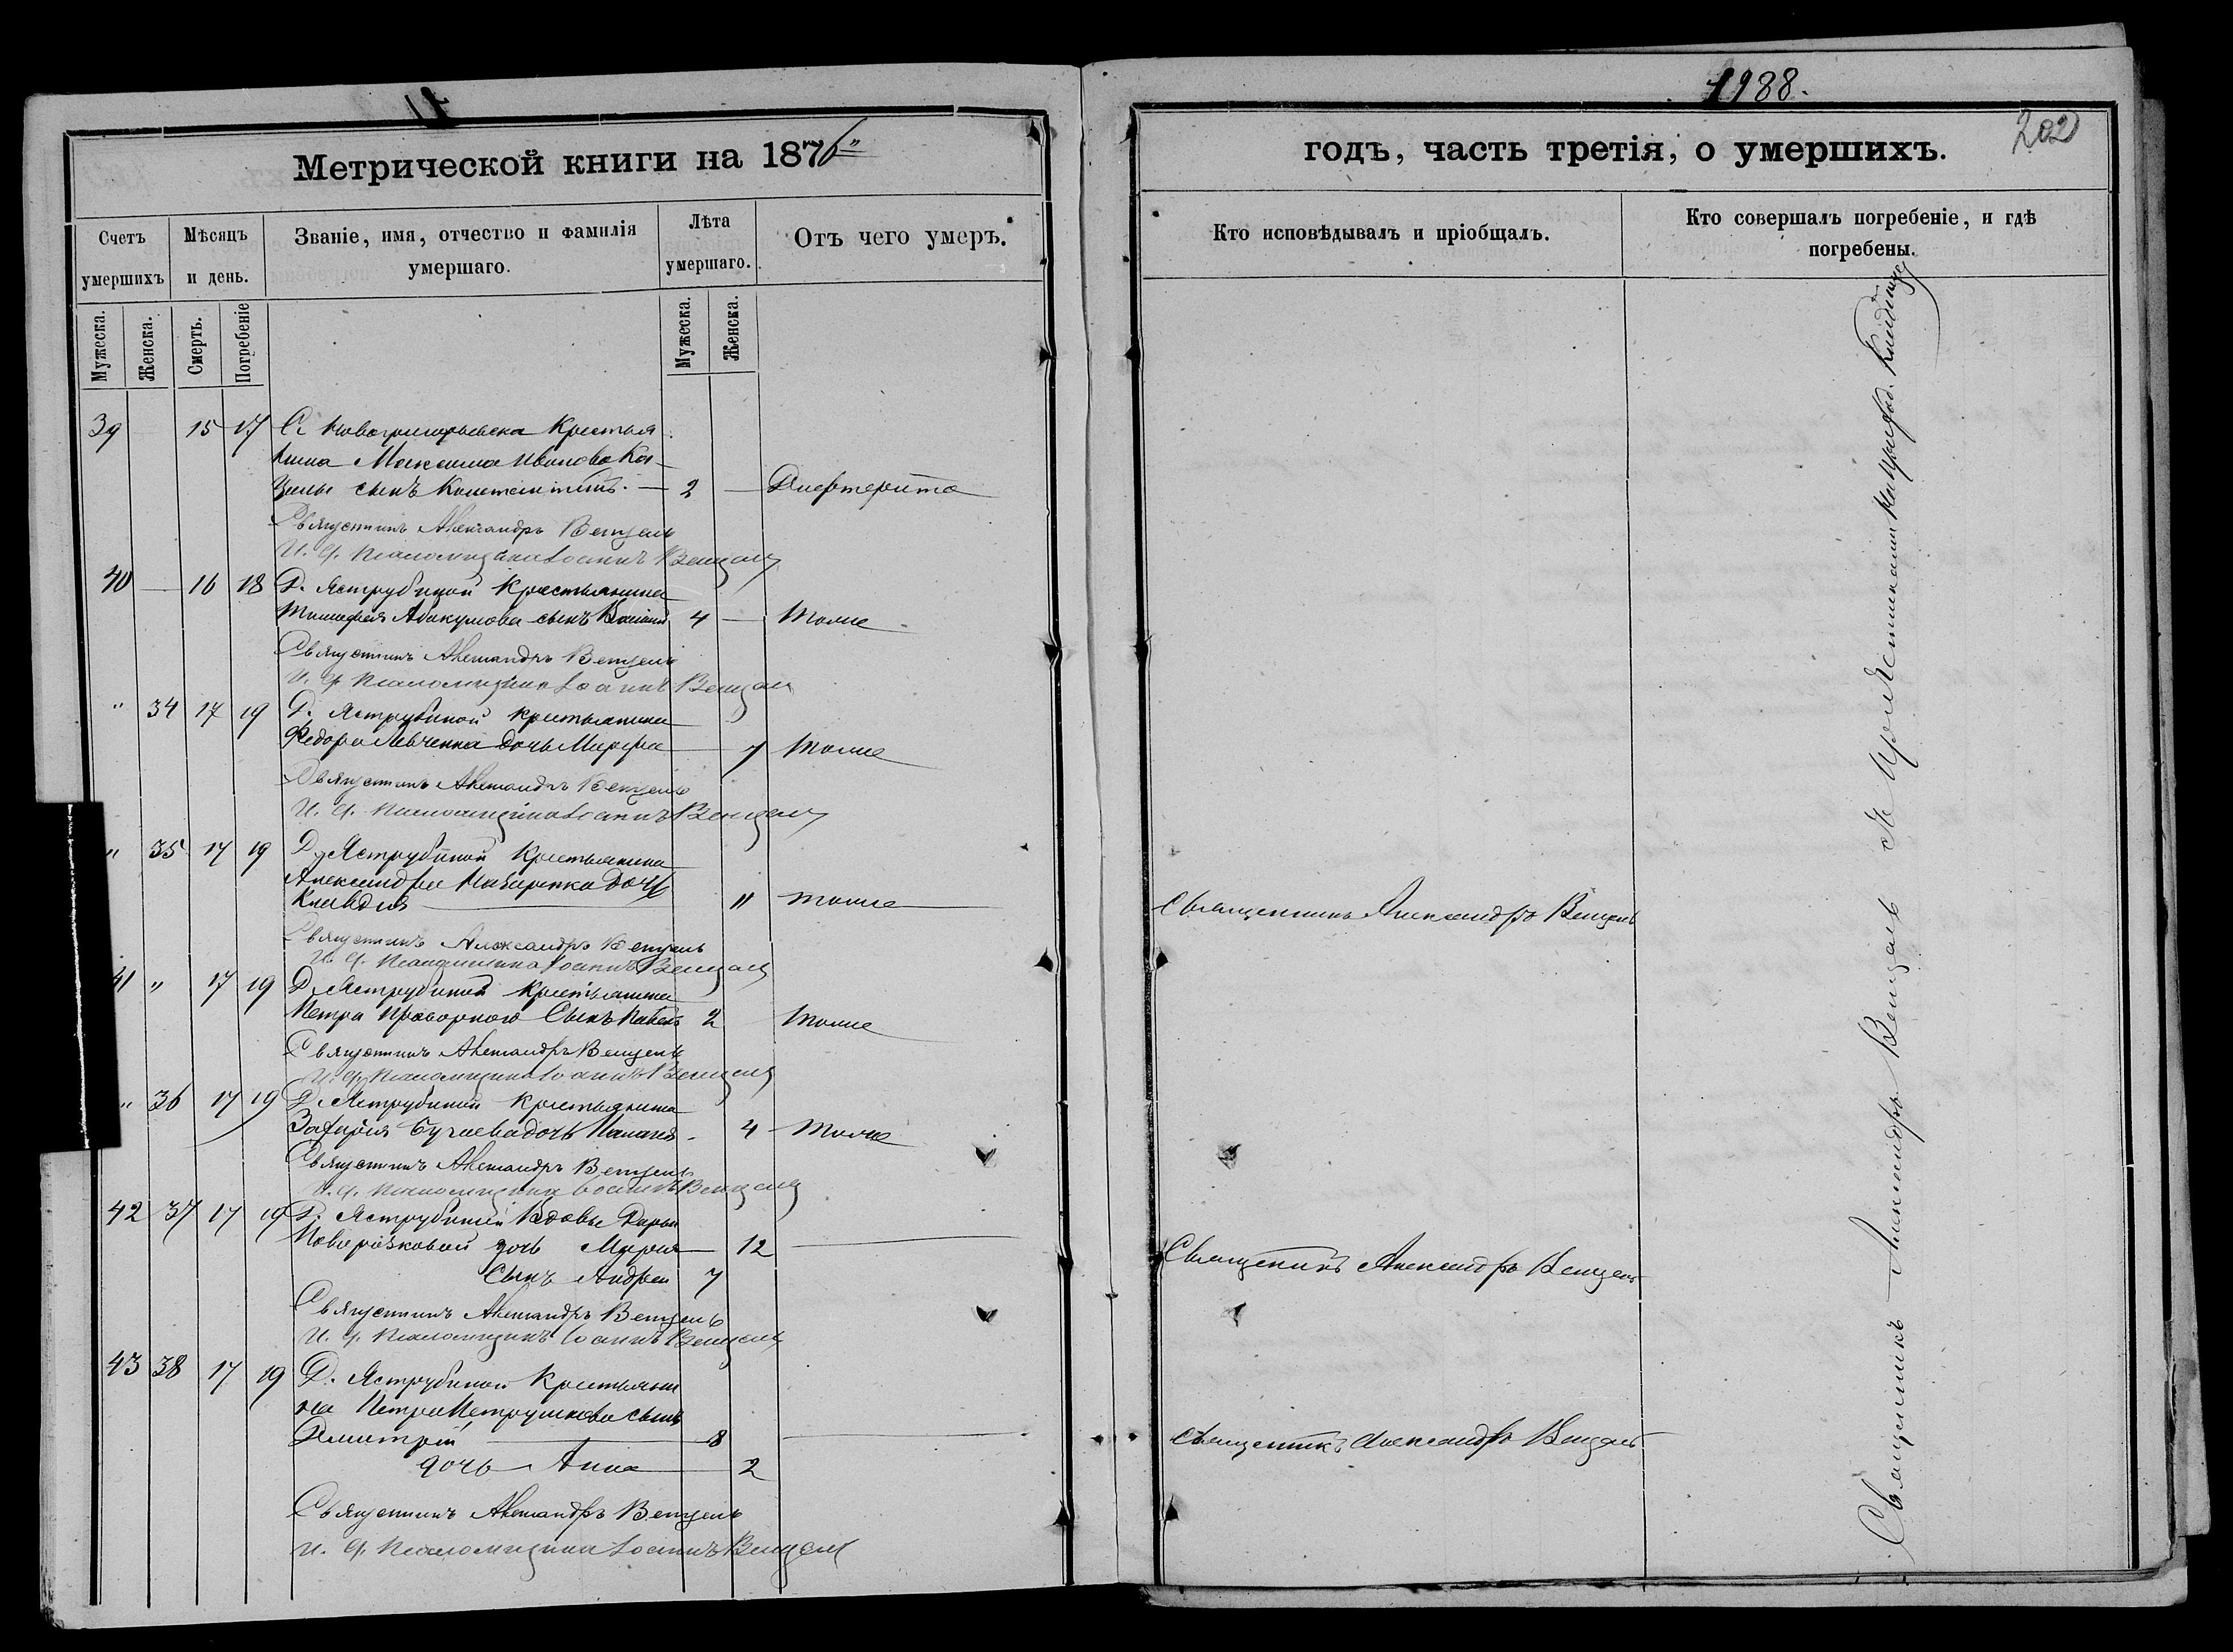 1988.
202
Метрической книги на 1876
годъ, часть третія, о умершихъ.
Счетъ умершихъ
Мѣсяцъ и день.
Званіе, имя, отчество и фамилія умершаго.
Лѣта умершаго.
Отъ чего умеръ.
Кто исповѣдывалъ и пріобщалъ.
Кто совершалъ погребеніе, и гдѣ погребены.
Мужеска.
Женска.
Смерть.
Погребеніе
Мужеска.
Женска.
39 15 17 С. Новогригорьевска Крестья
нина Максима Иванова Ка-
сынъ Константинъ. 2 Дифтерита
Священникъ Александръ Венцель
И. д. псаломщика Іоаннъ Венцель
40 — 16 18 Д. Яструбиной Крестьянина
Тимофея Абакумова сынъ 4 — тоже
Священникъ Александръ Венцель
И. д. псаломщика Іоаннъ Венцель
" 34 17 19 Д. Яструбиной крестьянина
Федора Левченка дочь Марфа 7 тоже
Священникъ Александръ Венцель
И. д. псаломщика Іоаннъ Венцель
" 35 17 19 Д. Яструбиной Крестьянина
Александра Назаренка дочь
Клавдія 11 тоже
Священникъ Александръ Венцель
Священникъ Александръ Венцель
И. д. псаломщика Іоаннъ Венцель
41 " 17 19 Д. Яструбиной Крестьянина
Петра Проворного Сынъ Павелъ 2 тоже
Священникъ Александръ Венцель
И. д. псаломщика Іоаннъ Венцель
" 36 17 19 Д. Яструбиной Крестьянина
Захарія дочь 4 тоже
Священникъ Александръ Венцель
И. д. псаломщика Іоаннъ Венцель
42 37 17 19 Д. Яструбиной Вдовы Дарьи
дочь Марія 12
Сынъ Андрей 7
Священникъ Александръ Венцель
Священникъ Александръ Венцель
И. д. псаломщика Іоаннъ Венцель
43 38 17 19 Д. Яструбиной Крестьяни
на Петра Петрушкова сынъ
Дмитрій 8
дочь Анна 2
Священникъ Александръ Венцель
Священникъ Александръ Венцель
И. д. псаломщика Іоаннъ Венцель
Священникъ Александръ Венцель